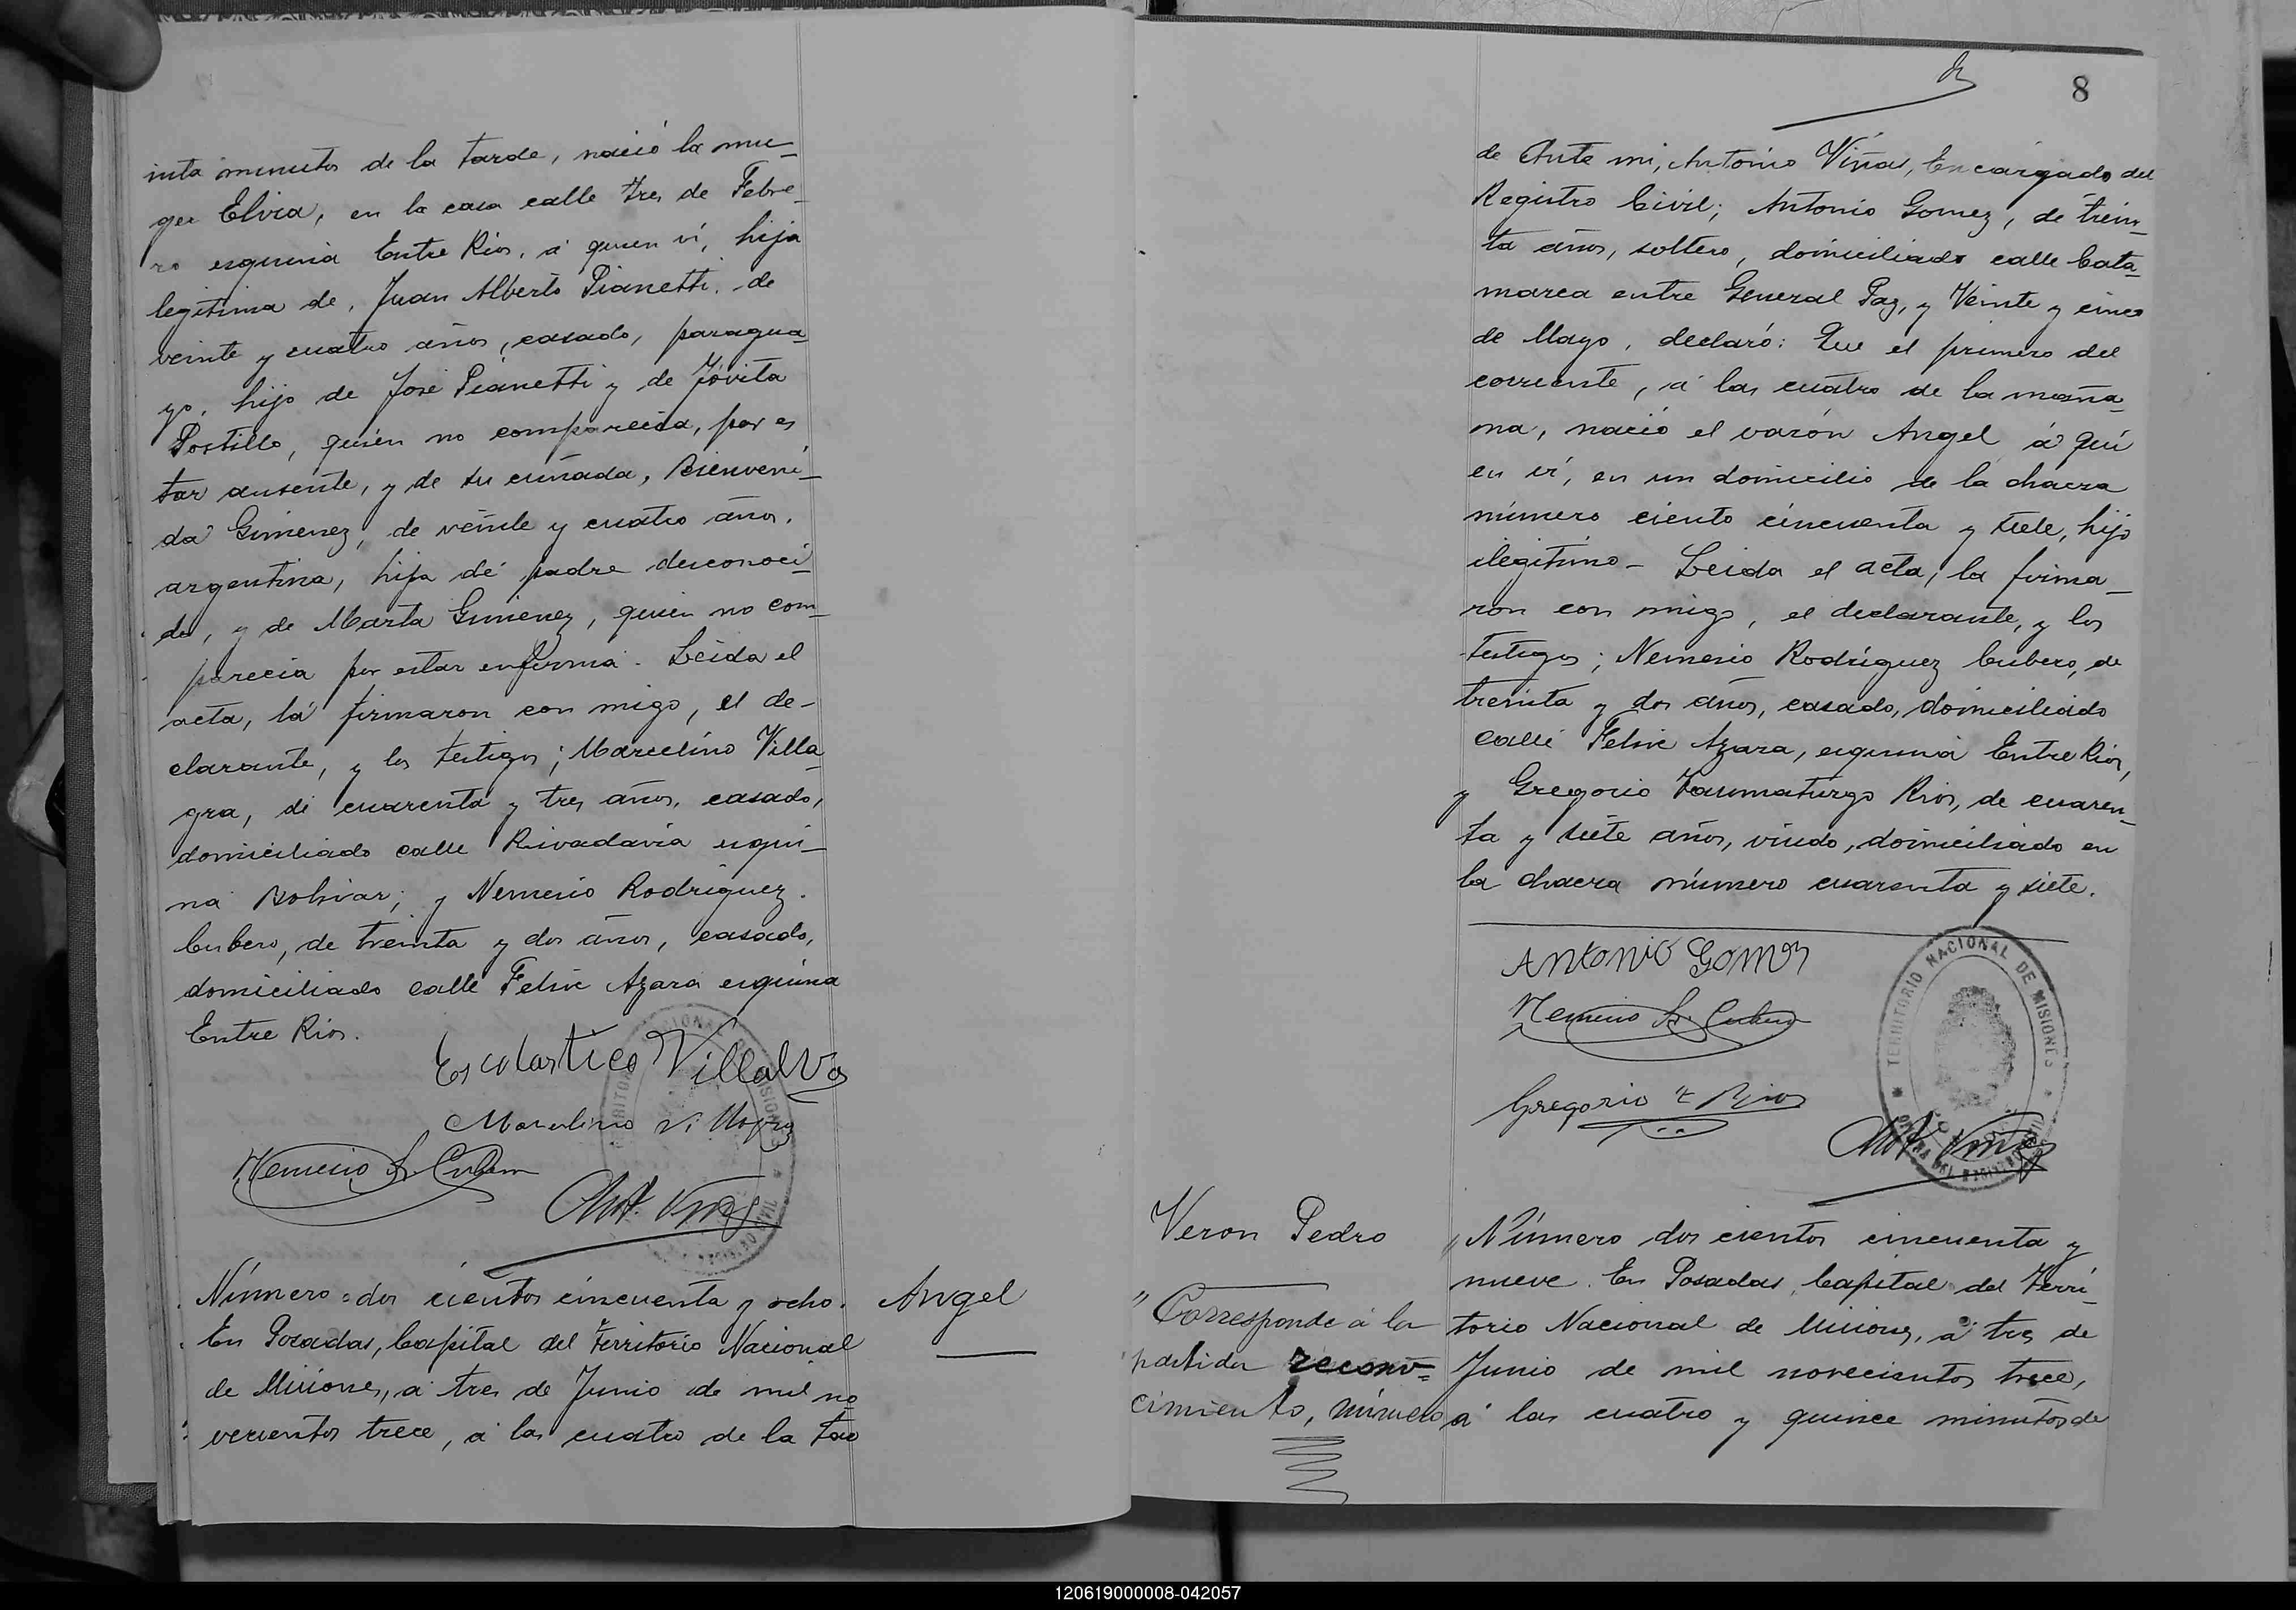 inta minutos de la tarde, nació la mu-
ger Elvira, en la casa calle tres de Febre-
ro esquina Entre Rios, á quien ví, hija
legitima de, Juan Alberto Pianetti, de
veinte y cuatro años, casado, paragua-
yo, hijo de José Pianetti y de Jóvita
Portillo, quién no comparecia, por es
tar ausente, y de su cuñada, Bienveni-
da Gimenez, de veinte y cuatro años,
argentina, hija de padre desconoci-
do, y de Marta Gimenez, quien no com-
parecia por estar enferma. Leida el
acta, la firmaron con migo, el de-
clarante, y los testigos; Marcelino Villa-
gra, de cuarenta y tres años, casado,
domiciliado calle Rivadavia esqui-
na Bolivar; y Nemesio Rodriguez
Cubero, de treinta y dos años, casado,
domiciliado calle Felix Azara esquina
Entre Rios.
Escolastico Villalva
Marcelino Villagra
Nemesio R. Cubero
Ant. Viñas
Número dos cientos cincuenta y ocho.
Angel
En Posadas, Capital del Territorio Nacional
de Misiones, á tres de Junio de mil no
vecientos trece, á las cuatro de la tar
8
de Ante mi, Antonio Viñas, Encargado del
Registro Civil; Antonio Gomez, de trein-
ta años, soltero, domiciliado calle Cata-
marca entre General Paz, y Veinte y cinco
de Mayo, declaró: Que el primero del
corriente, á las cuatro de la maña-
na, nació el varón Angel á qui
en ví, en un domicilio de la chacra
número ciento cincuenta y siete, hijo
ilegitimo - Leida el acta, la firma-
ron con migo, el declarante, y los
testigos; Nemesio Rodriguez Cubero, de
treinta y dos años, casado, domiciliado
calle Felix Azara, esquina Entre Rios,
y Gregorio Taumaturgo Rios, de cuaren-
ta y siete años, viudo, domiciliado en
la chacra número cuarenta y siete.
Antonio Gomez
Nemesio R. Cubero
Gregorio T Rios
Ant. Viñas
TERRITORIO NACIONAL DE MISIONES
Veron Pedro
"Corresponde á la
partida recono=
cimiento, número
Número dos cientos cincuenta y
nueve. En Posadas, Capital del Terri-
torio Nacional de Misiones, á tres de
Junio de mil novecientos trece,
á las cuatro y quince minutos de
120619000008-042057